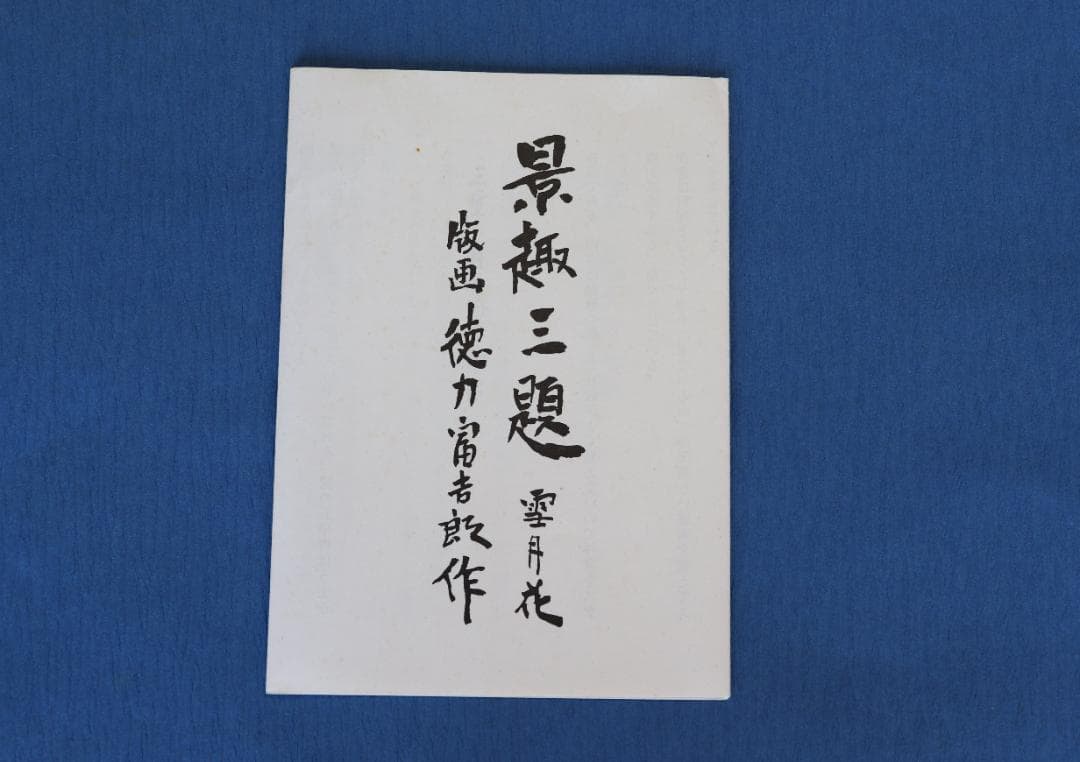 景趣三題 雪月花
版画 徳力富吉郎作